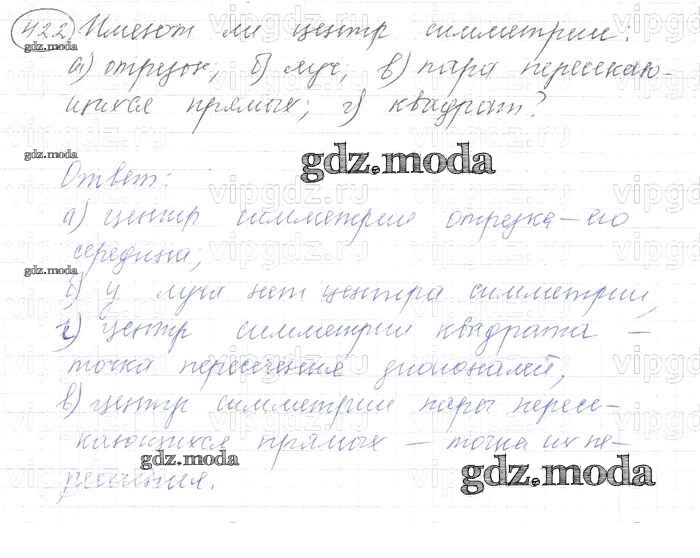 422 Имеют ли центр симметрии:
а) отрезок, б) луч, в) пара пересекаю-
щихся прямых; г) квадрат?
Ответ:
а) центр симметрии отрезка – его
середина;
б) у луча нет центра симметрии,
г) центр симметрии квадрата –
точка пересечения диагоналей,
в) центр симметрии пары пересе-
кающихся прямых – точка их пе-
ресечения.
gdz.moda
gdz.moda
gdz.moda
gdz.moda
gdz.moda
gdz.moda
vipgdz.ru